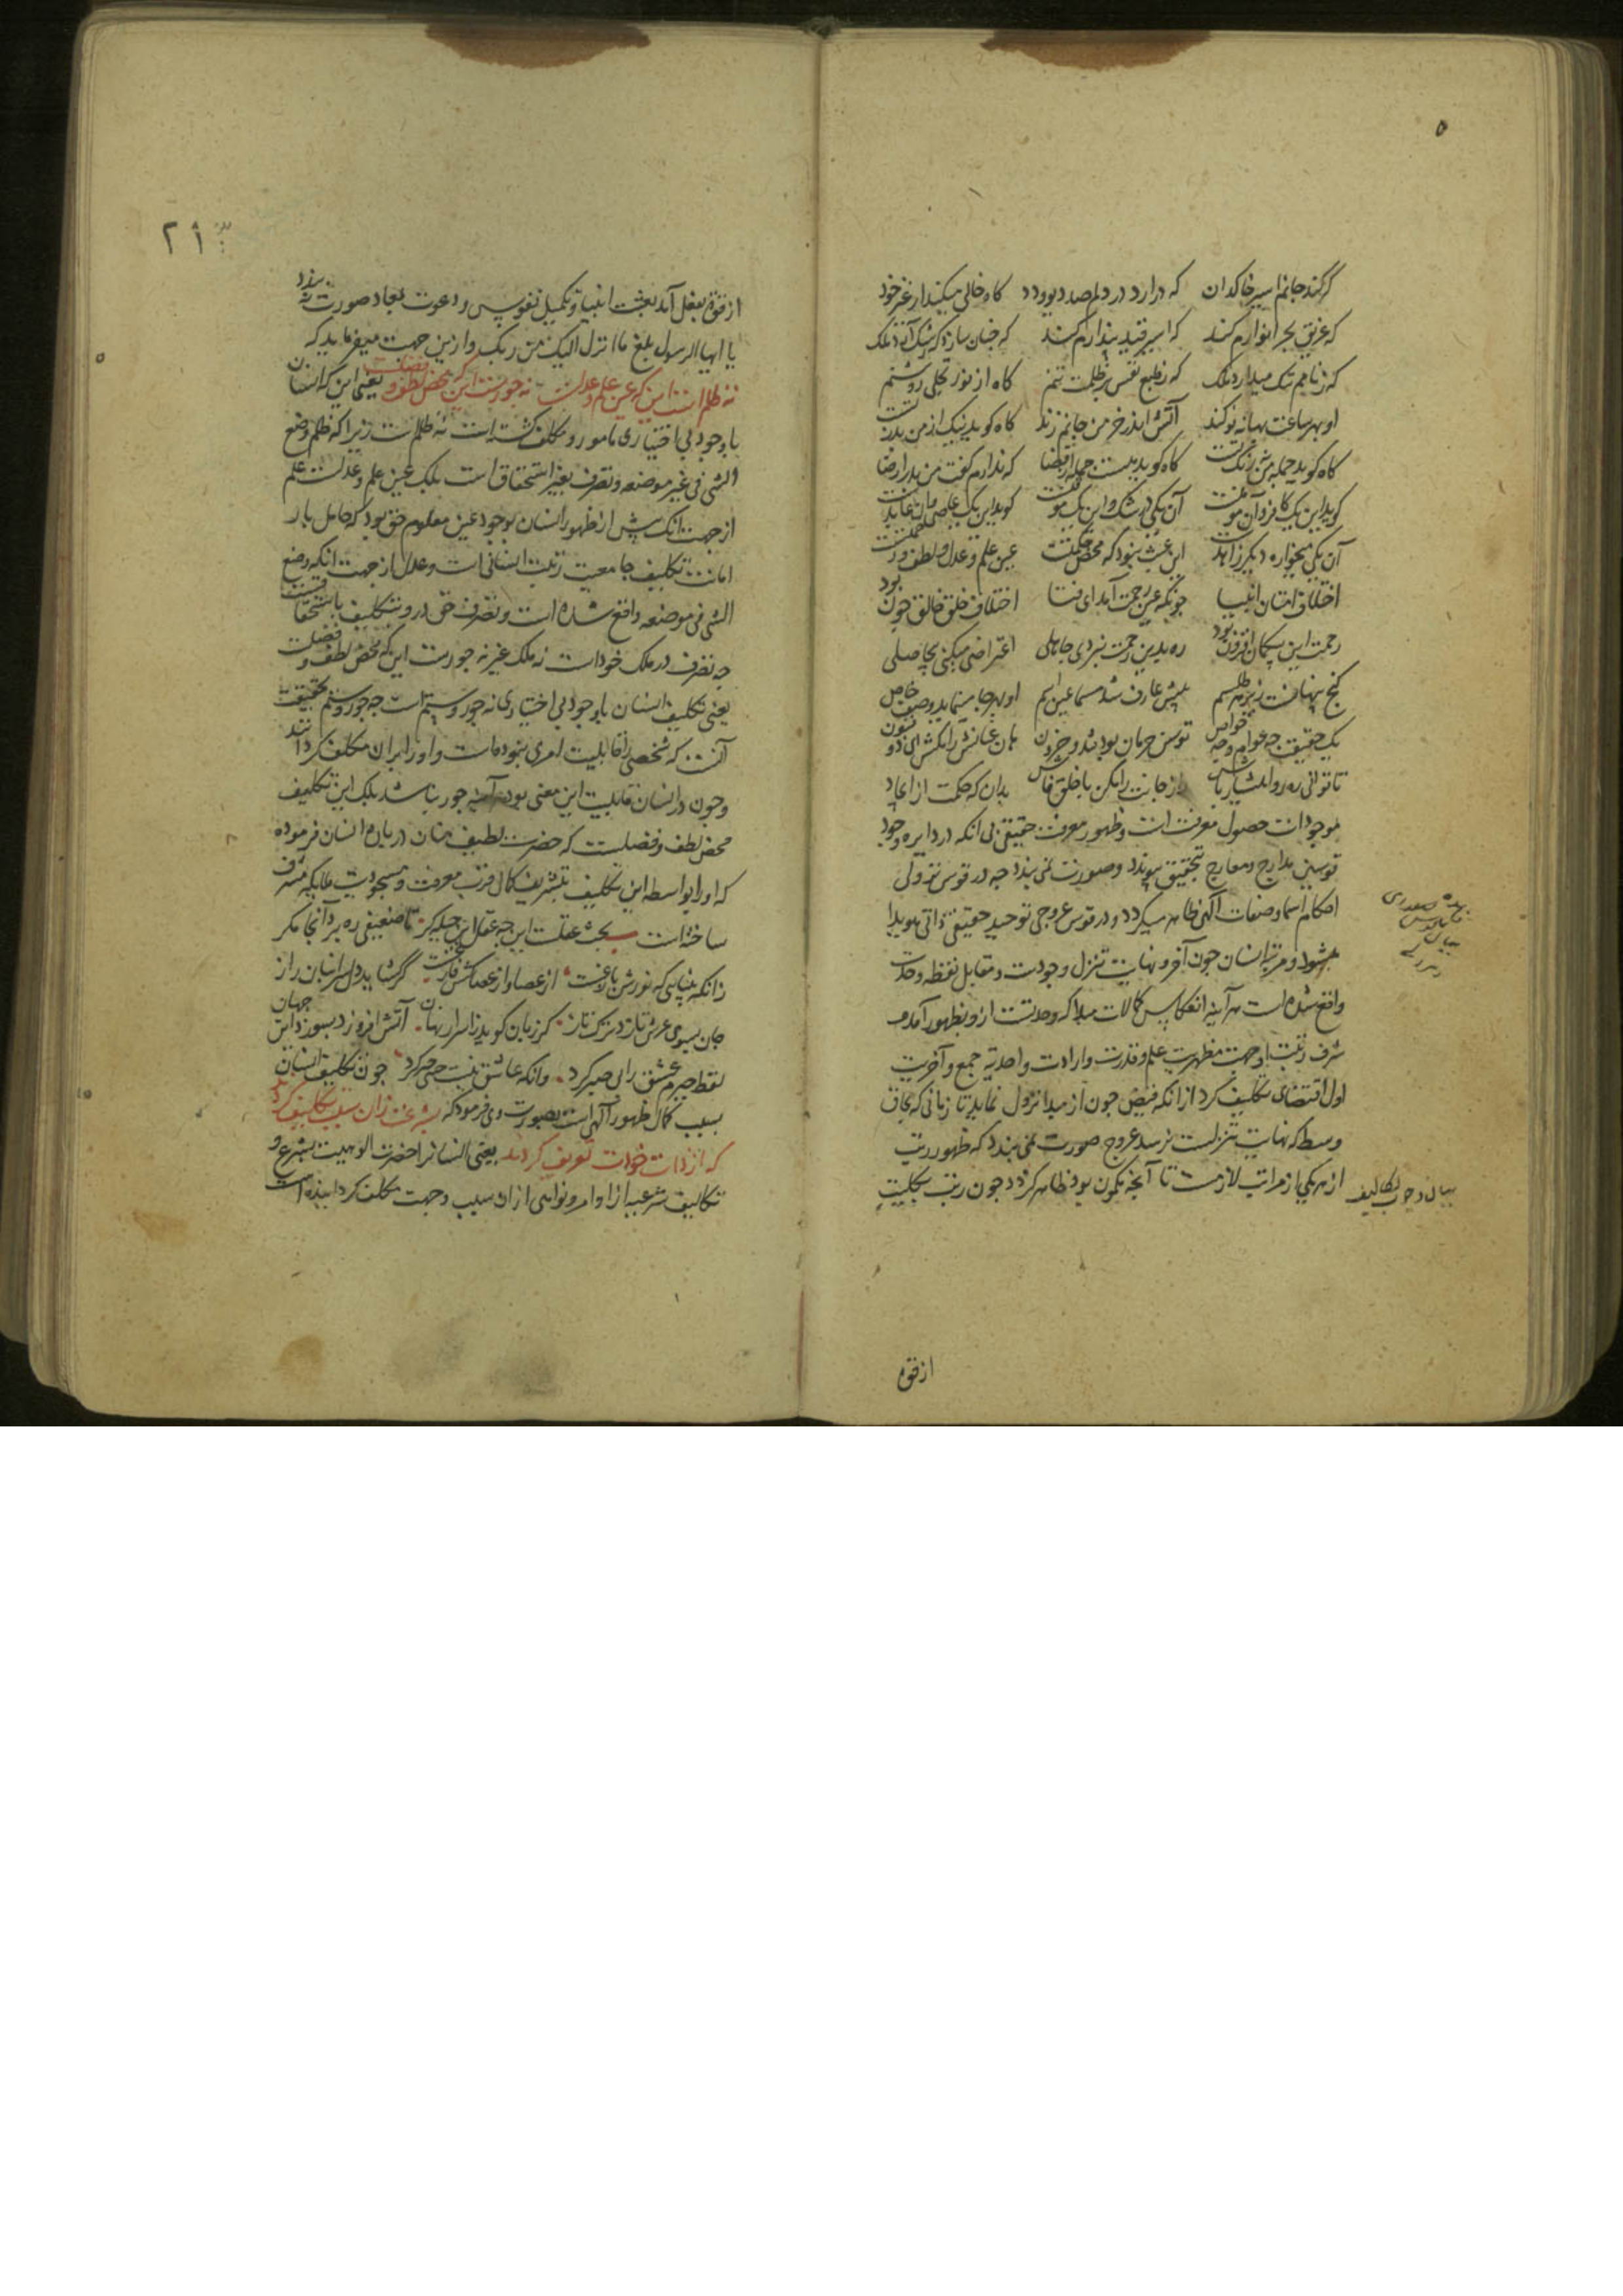 ۵
گر کند جانم اسیر خاکدان که درآرد در دلم صد دیو و دد گاه خالی میکند از غیر خود
که غریق بحر انوارم کند که اسیر قید پندارم کند که چنان سازد که رشک آید ملک
که زنامم ننک میدارد فلک که ز طبع نفس پر ظلمت تنم گاه از نور تجلی روشنم
او بهر ساعت بهانه نو کند آتش اندر خرمن جانم زند گاه گوید نیک از من بد ز تست
گاه گوید جمله من گاه گوید نیست جز از قضا که ندارم گفت من بد را رضا
گوید این یک کافر و آن مومنست آن یکی در شک و این یک گوید این یک عاصی و آن عابدست
آن یکی میخواره دیگر زاهدست این عبث نبود که محض حکمتست عین علم و عدل و لطف و رحمتست
اختلاف امتان انبیا چونکه عین رحمت آمد ای فتا اختلاف خلق خالق چون بود
رحمت این بیکمان افزون بود ره بدین رحمت نبردی جاهلی اعتراضی میکنی بیحاصلی
گنج پنهانست زیر هر طلسم پیش عارف شد مسما عین اسم او بهر جا مینماید وصف خاص
یک حقیقت چه عوام و چه خواص توسن چرخان بود تند و حرون هان عنانش را بکش ای ذو فنون
تا توانی ره رو هشیار باش راز جانت را مکن با خلق فاش بدان که حکمت از ایجاد
موجودات حصول معرفت است و ظهور معرفت حقیقی بی انکه در دایره وجود
قوسین مدارج و معارج تحقیق پیوندد و صورت نمی بندد چه در قوس نزولی
احکام اسما و صفات الهی ظاهر میگردد و در قوس عروجی توحید حقیقی ذاتی هویدا
میشود و مرتبه انسان چون آخر و نهایت تنزل وجودست و مقابل نقطه وحدت
واقع شده است هر آینه انعکاس کمالات مبدا که وحدتست ازو بظهور آمده
شرف رتبت او جهت مظهریت علم و قدرت و ارادت و احدیه جمع و آخریت
اول اقتضای تکلیف کرد از انکه فیض چون از مبدا نزول نماید تا زمانی که بحاق
وسط که نهایت تنزلست نرسد عروج صورت نمی بندد که ظهور رتبت
از هر یکی از مراتب لازمست تا آنچه مکمون بود ظاهر گردد چون رتبت کلیت
بیان وجوب تکالیف
از قوه
۲۱
از قوه بفعل آمد بعثت انبیا و تکمیل نفوس و دعوت عباد صورت پذیرد
یا ایها الرسول بلغ ما انزل الیک من ربک و ازین جهت میفرماید که
نه ظلم است این که عین علم و عدلست نه جورست این که محض لطف و فضلست یعنی این که انسان
با وجود بی اختیاری مامور و مکلف گشته است نه ظلمست زیرا که ظلم وضع
الشی فی غیر موضعه و تصرف بغیر استحقاق است بلکه عین علم و عدلست علم
از جهت انک پیش از ظهور انسان بوجود عین معلوم حق بود که حامل بار
امانت تکلیف جامعیت رتبت انسانی است و عدل از جهت انکه وضع
الشی فی موضعه واقع شده است و تصرف حق درو بتکلیف باستحقاقست
چه تصرف در ملک خود است نه ملک غیر نه جورست این که محض لطف و فضلست
یعنی تکلیف انسان با وجود بی اختیاری نه جور و ستم است چه جور و ستم حقیقت
آنست که شخصی را قابلیت امری نبوده است و او را بران مکلف گردانند
و چون در انسان قابلیت این معنی بود هر آینه جور نباشد بلک این تکلیف
محض لطف و فضلست که حضرت لطیف منان در باره انسان فرموده
که او را بواسطه این تکلیف بتشریف کمال قرب معرفت و مسجودیت ملایکه مشرف
ساخته است بحث عقلست این چه عقل این حیله کر تا ضعیفی ره برد آنجا مکر
زانکه بینایی که نورش بازغست از عصا و از عصاکش فارغست گر شاید دل سر انبان راز
جان بسوی عرش تازد ترک تاز گر زبان گوید ز اسرار نهان آتش افروزد بسوزد این جهان
لفظ جبرم عشق را بی صبر کرد وانکه عاشق نیست حبس جبر کرد چون تکلیف انسان
بسبب کمال ظهور الهی است بصورت وی فرمود که بشرعت زان سبب تکلیف کردند
که از ذات خودت تعریف کردند یعنی انسانرا حضرت الوهیت بشرع و
تکالیف شرعیه از اوامر و نواهی از ان سبب و جهت مکلف گردانیده است